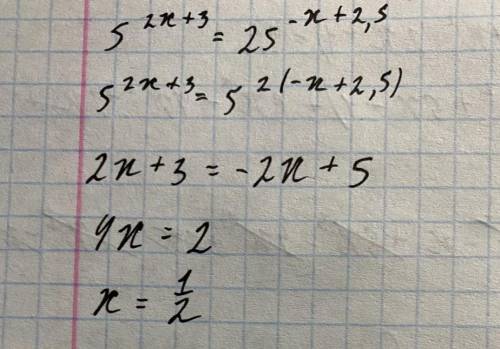 5^{2x+3} = 25^{-x+2,5}
5^{2x+3} = 5^{2(-x+2,5)}
2x+3 = -2x+5
4x = 2
x = \frac{1}{2}